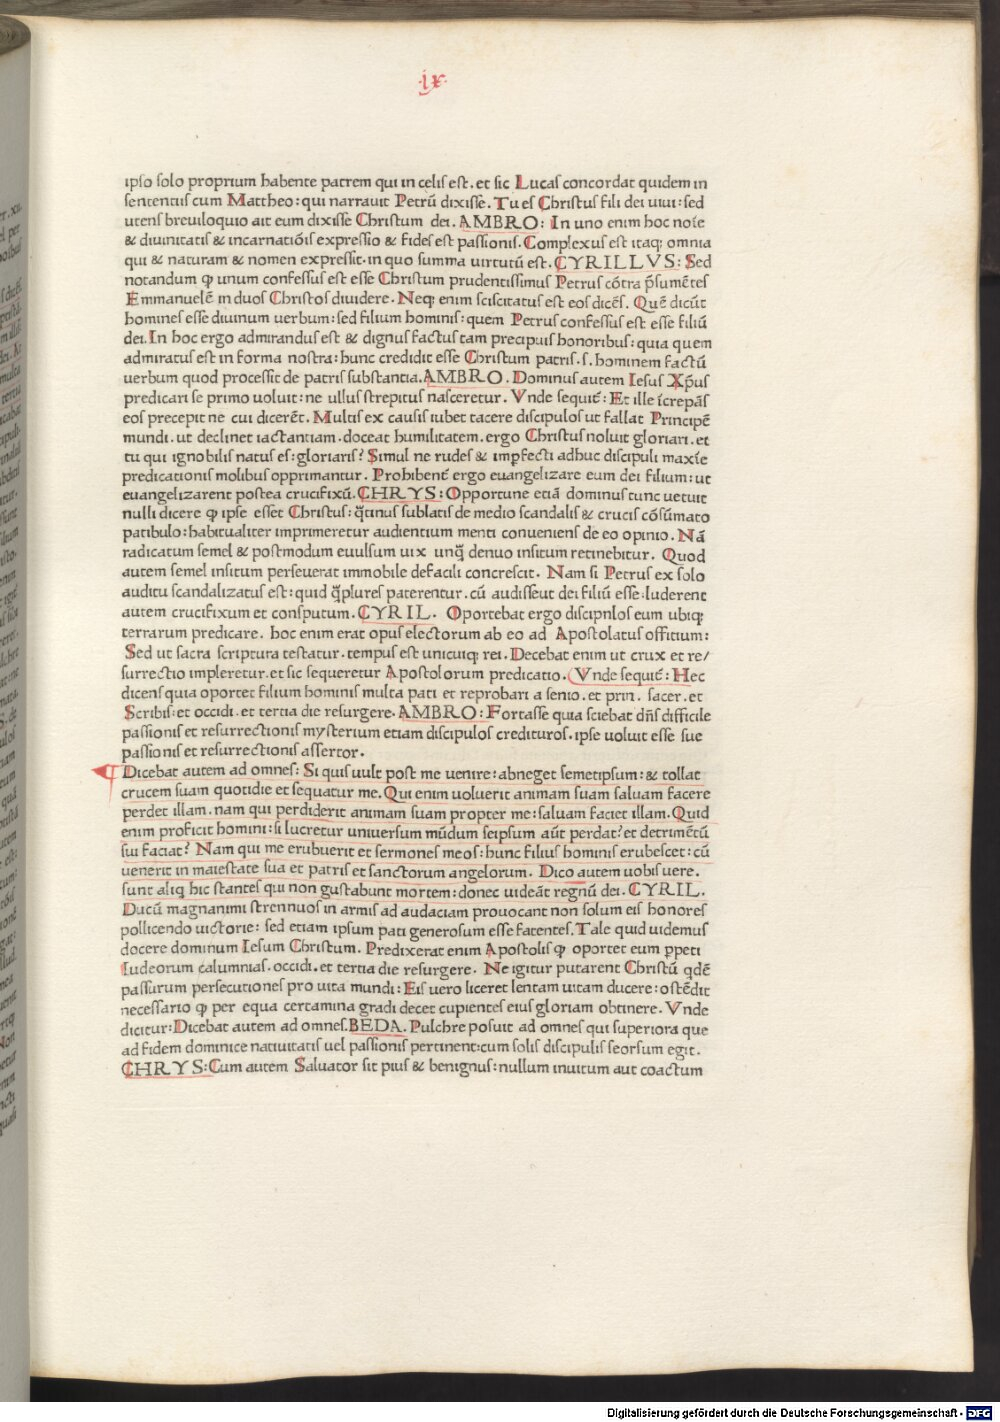 ·ix·
ipso solo proprium habente patrem qui in celis est. et sic Lucas concordat quidem in
sententiis cum Mattheo: qui narrauit Petrū dixisse. Tu es Christus fili dei uiui: sed
utens breuiloquio ait eum dixisse Christum dei. AMBRO: In uno enim hoc noīe
& diuinitatis & incarnatiōis expressio & fides est passionis. Complexus est itaq; omnia
qui & naturam & nomen expressit. in quo summa uirtutū est. CYRILLVS: Sed
notandum ꝙ unum confessus est esse Christum prudentissimus Petrus cōtra p̄sumētes
Emmanuelē in duos Christos diuidere. Neq; enim sciscitatus est eos dicēs. Quē dicūt
homines esse diuinum uerbum: sed filium hominis: quem Petrus confessus est esse filiū
dei. In hoc ergo admirandus est & dignus factus tam precipuis honoribus: quia quem
admiratus est in forma nostra: hunc credidit esse Christum patris .s. hominem factū
uerbum quod processit de patris substantia. AMBRO. Dominus autem Iesus Xp̄us
predicari se primo uoluit: ne ullus strepitus nasceretur. Vnde sequit̄: Et ille īcrepās
eos precepit ne cui dicerēt. Multis ex causis iubet tacere discipulos ut fallat Principē
mundi. ut declinet iactantiam. doceat humilitatem. ergo Christus noluit gloriari. et
tu qui ignobilis natus es: gloriaris? Simul ne rudes & imp̲fecti adhuc discipuli maxīe
predicationis molibus opprimantur. Prohibent̄ ergo euangelizare eum dei filium: ut
euangelizarent postea crucifixū. CHRYS: Opportune etiā dominus tunc uetuit
nulli dicere ꝙ ipse esset Christus: q̄tinus sublatis de medio scandalis & crucis cōsūmato
patibulo: habitualiter imprimeretur audientium menti conueniens de eo opinio. Nā
radicatum semel & postmodum euulsum uix unq̄ denuo insitum retinebitur. Quod
autem semel insitum perseuerat immobile defacili concrescit. Nam si Petrus ex solo
auditu scandalizatus est: quid q̄plures paterentur. cū audisseut dei filiū esse: luderent
autem crucifixum et consputum. CYRIL. Oportebat ergo discipnlos eum ubiq;
terrarum predicare. hoc enim erat opus electorum ab eo ad Apostolatus offitium:
Sed ut sacra scriptura testatur. tempus est unicuiq; rei. Decebat enim ut crux et re/
surrectio impleretur. et sic sequeretur Apostolorum predicatio. Vnde sequit̄: Hec
dicens quia oportet filium hominis multa pati et reprobari a senio. et prin. sacer. et
Scribis: et occidi. et tertia die resurgere. AMBRO: Fortasse quia sciebat dn̄s difficile
passionis et resurrectionis mysterium etiam discipulos credituros. ipse uoluit esse sue
passionis et resurrectionis assertor.
¶ Dicebat autem ad omnes: Si quis uult post me uenire: abneget semetipsum: & tollat
crucem suam quotidie et sequatur me. Qui enim uoluerit animam suam saluam facere
perdet illam. nam qui perdiderit animam suam propter me: saluam faciet illam. Quid
enim proficit homini: si lucretur uniuersum mūdum seipsum aūt perdat? et detrimētū
sui faciat? Nam qui me erubuerit et sermones meos: hunc filius hominis erubescet: cū
uenerit in maiestate sua et patris et sanctorum angelorum. Dico autem uobis uere.
sunt aliq̄ hic stantes qui non gustabunt mortem: donec uideāt regnū dei. CYRIL.
Ducū magnanimi strennuos in armis ad audaciam prouocant non solum eis honores
pollicendo uictorie: sed etiam ipsum pati generosum esse fatentes. Tale quid uidemus
docere dominum Iesum Christum. Predixerat enim Apostolis ꝙ oportet eum p̲peti
Iudeorum calumnias. occidi. et tertia die resurgere. Ne igitur putarent Christū qdē
passurum persecutiones pro uita mundi: Eis uero liceret lentam uitam ducere: ostēdit
necessario ꝙ per equa certamina gradi decet cupientes eius gloriam obtinere. Vnde
dicitur: Dicebat autem ad omnes. BEDA. Pulchre posuit ad omnes qui superiora que
ad fidem dominice natiuitatis uel passionis pertinent: cum solis discipulis seorsum egit.
CHRYS: Cum autem Saluator sit pius & benignus: nullum inuitum aut coactum
Digitalisierung gefördert durch die Deutsche Forschungsgemeinschaft - DFG